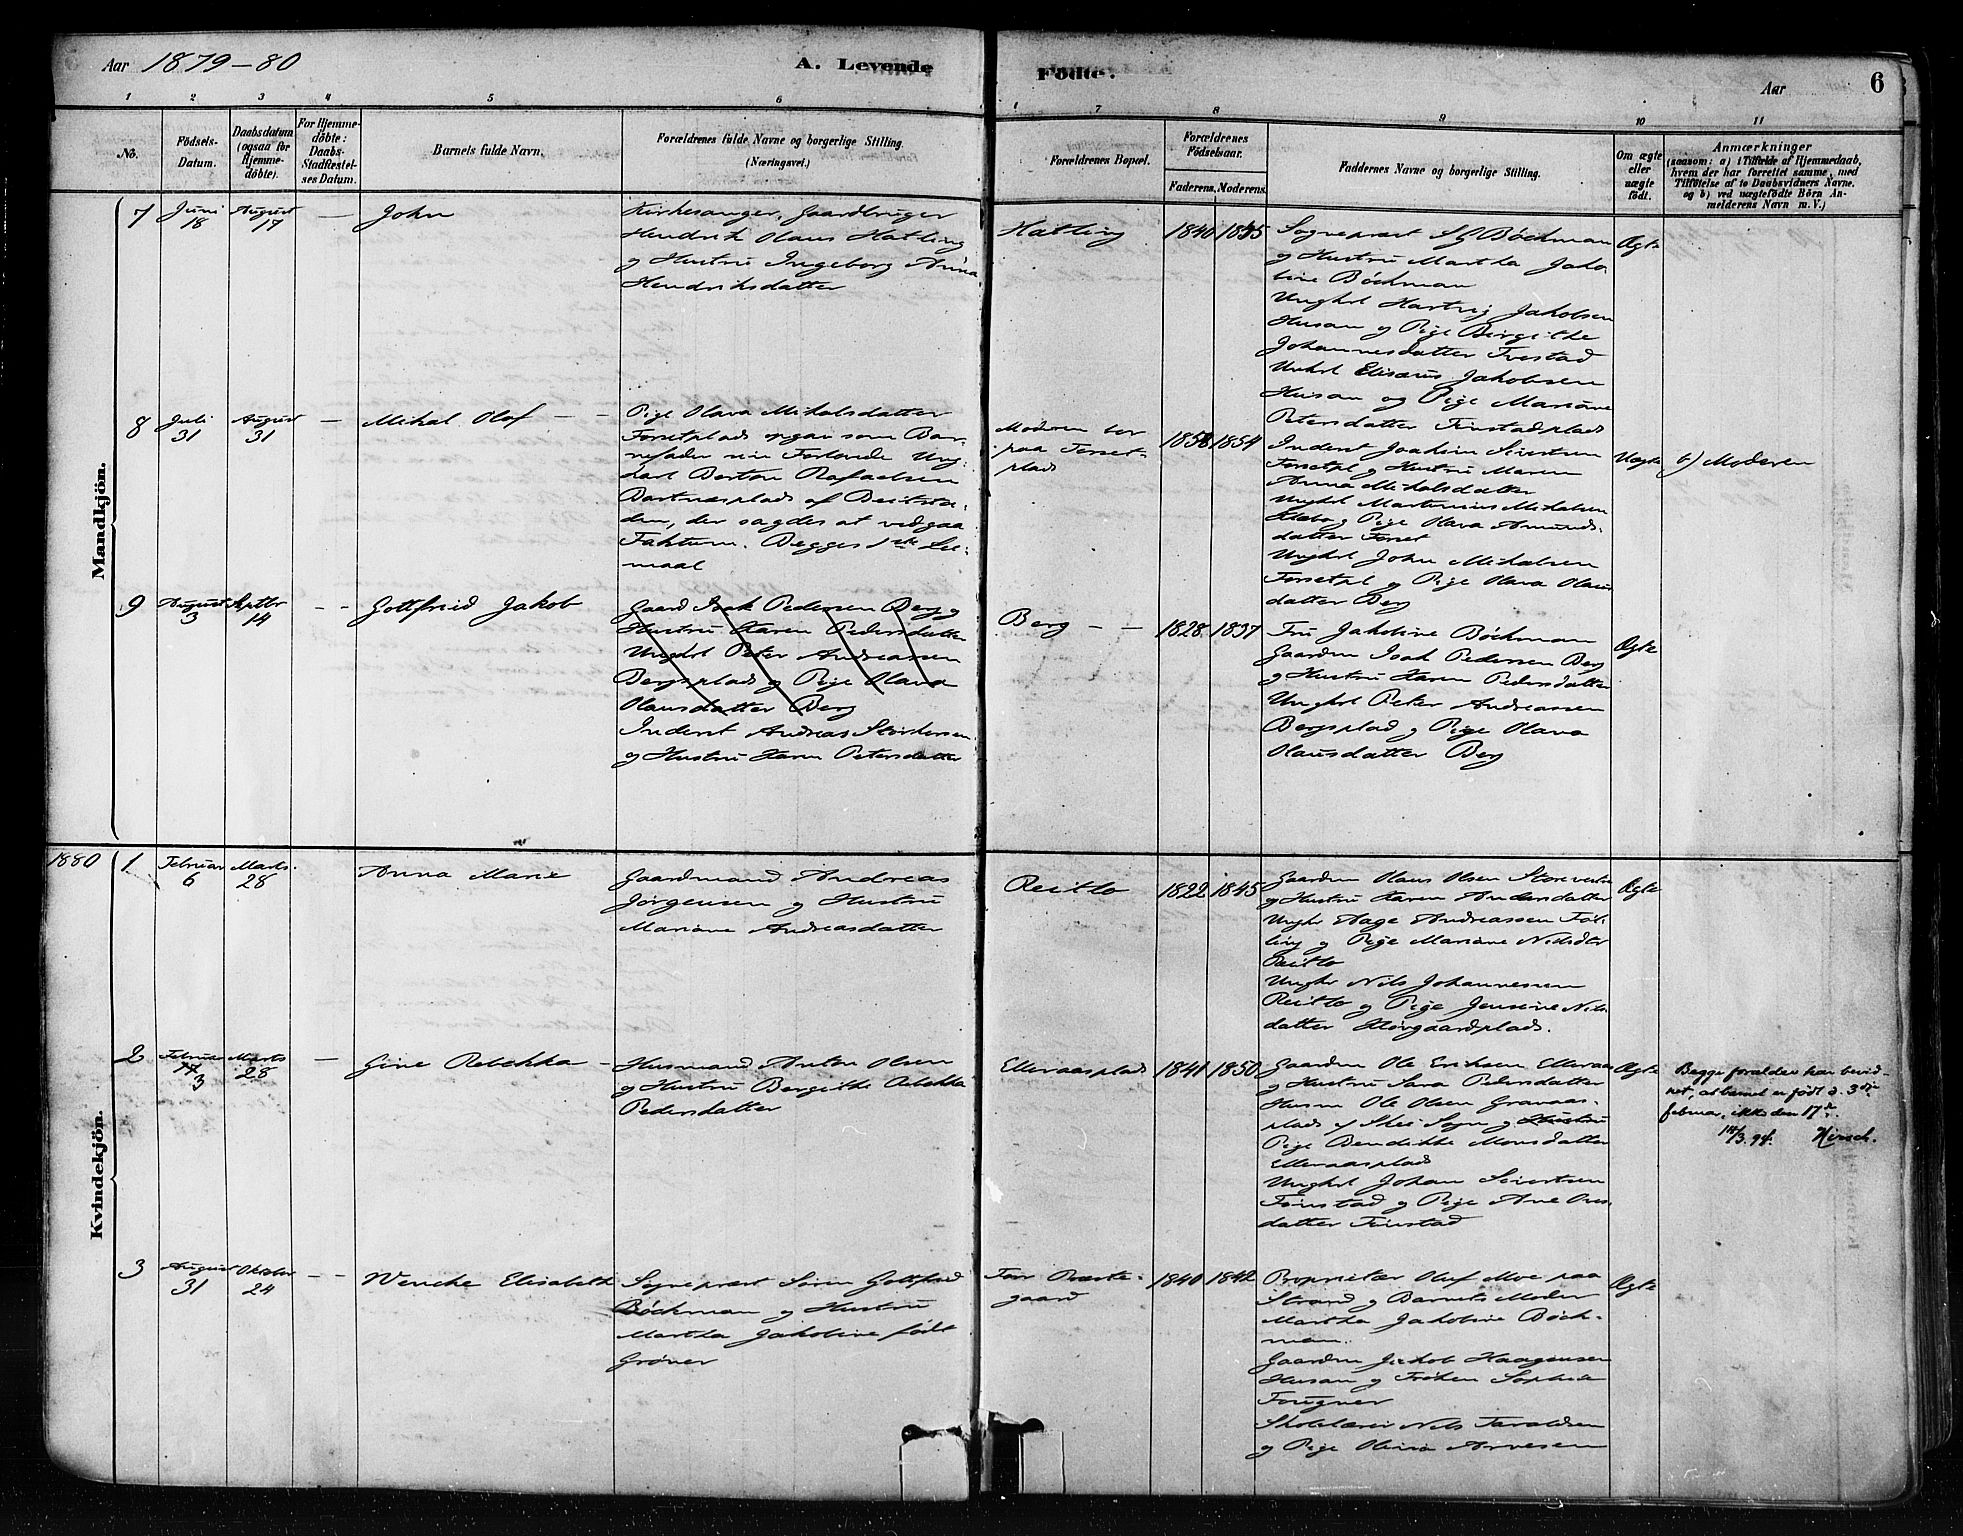 Aar 1879-80
A. Levende
Födte.
Aar
6
1 2 3 4 5 6
7 8 9 10 11
No.
Födsels-
Datum.
Daabsdatum
(ogsaa for
Hjemme-
döbte).
For Hjemme-
döbte:
Daabs-
Stadfæstel-
ses Datum.
Barnets fulde Navn.
Forældrenes fulde Navne og borgerlige Stilling.
(Næringsvei.)
Forældrenes Bopæl.
Forældrenes
Födselsaar.
Faderens. Moderens.
Faddernes Navne og borgerlige Stilling.
Om ægte
eller
uægte
födt.
Anmærkninger
(saasom: a) i Tilfælde af Hjemmedaab,
hvem der har forrettet samme, med
Tilföielse af to Daabsvidners Navne,
og b) ved uægtefödte Börn An-
melderens Navn m. V.)
Mandkjön.
7
Juni
18
August
17
—
John
Kirkesanger, Gaardbruger
Hendrik Olaus Hatling
og Hustru Ingeborg Anna
Hendriksdatter
Hatling
1840
1855
Sognepræst S G Böckman
og Hustru Martha Jako
bine Böckman
Unghrl Hartvig Jakobsen
Husan og Pige Birgithe
Johannesdatter Tvestad
Unkrl Elisæus Jakobsen
Husan og Pige Mariane
Petersdatter Finstadplads
Ægte
8
Juli
31
August
31
—
Mikal Olof — —
Pige Olava Mikalsdatter
Forsetplads opgav som Bar-
nefader sin Forlovede Ung-
karl Berton Rafaelsen
Bartnesplads af Beitsta-
den, der sagdes at vedgaa
Faktum. Begges 1ste Lei-
maal
Moderen bor
paa Forset-
plads
1858
1854
Inderst Joakim Sivertsen
Forsetpl og Hustru Maren
Anna Mikalsdatter
Unghrl Martinius Mikalsen
og Pige Olava Amunds-
datter Forset
Unghrl John Mikalsen
Forsetpl og Pige Olava Olaus
datter Berg
Uægte
b) Moderen
9
August
3
Septbr
14
— —
Gottfried Jakob
Gaard Isak Pedersen Berg og
Hustru Karen Pedersdatter
Unghrl Peter Andreassen
Bergsplads og Pige Olava
Olausdatter Berg
Inderst Andreas Störkersen
og Hustru Karen Petersdatter
Berg — —
1828
1837
Fru Jakobine Böckman
Gaardm Isak Pedersen Berg
og Hustru Karen Pedersdatter
Unghrl Peter Andreassen
Bergsplad og Pige Olava
Olausdatter Berg
Ægte
Kvindekjön.
1880
1
Februar
6
Marts
28
Anna Marie
Gaardmand Andreas
Jørgensen og Hustru
Mariane Andreasdatter
Reitlo
1822
1845
Gaardm Olaus Olsen Storevestre
og Hustru Karen Andersdatter
Unghr Aage Andreassen Föl-
ling og Pige Mariane Nilsdtr
Reitlo
Unghr Nils Johannessen
Reitlo og Pige Jensine Nils
datter Klövgaardplads.
Ægte
2
Februar
17
3
Marts
28
—
Gine Rebekka —
Husmand Anton Olsen
og Hustru Bergithe Rebekka
Pedersdatter
Elleraasplad
1841
1850
Gaardm Ole Eriksen Elleraas
og Hustru Sara Pedersdatter
Husm Ole Olsen Gravaas-
plads af Stei Sogn og Hustru
Pige Bendikke Monsdatter
Elleraasplad
Unghrl Johan Sivertsen
Finstad og Pige Ane Ons
datter Finstad
Ægte
Begge forældre har bevid-
net, at barnet er født d. 3die
februar, ikke den 17de.
14/3. 94. Hirsch.
3
August
31
Oktober
24
— —
Wencke Elisabeth
Sognepræst Sören Gottfried
Böckman og Hustru
Martha Jakobine født
Gröner
Foss Præste-
gaard
1840
1842
Proprietær Oluf Moe paa
Strand og Barnets Moder
Martha Jakobine Böck-
man.
Gaardm Jakob Haagensen
Husan og Fröken Sophie
Fougner
Skolelærer Nils Taraldsen
og Pige Olina Arnesen
Ægte